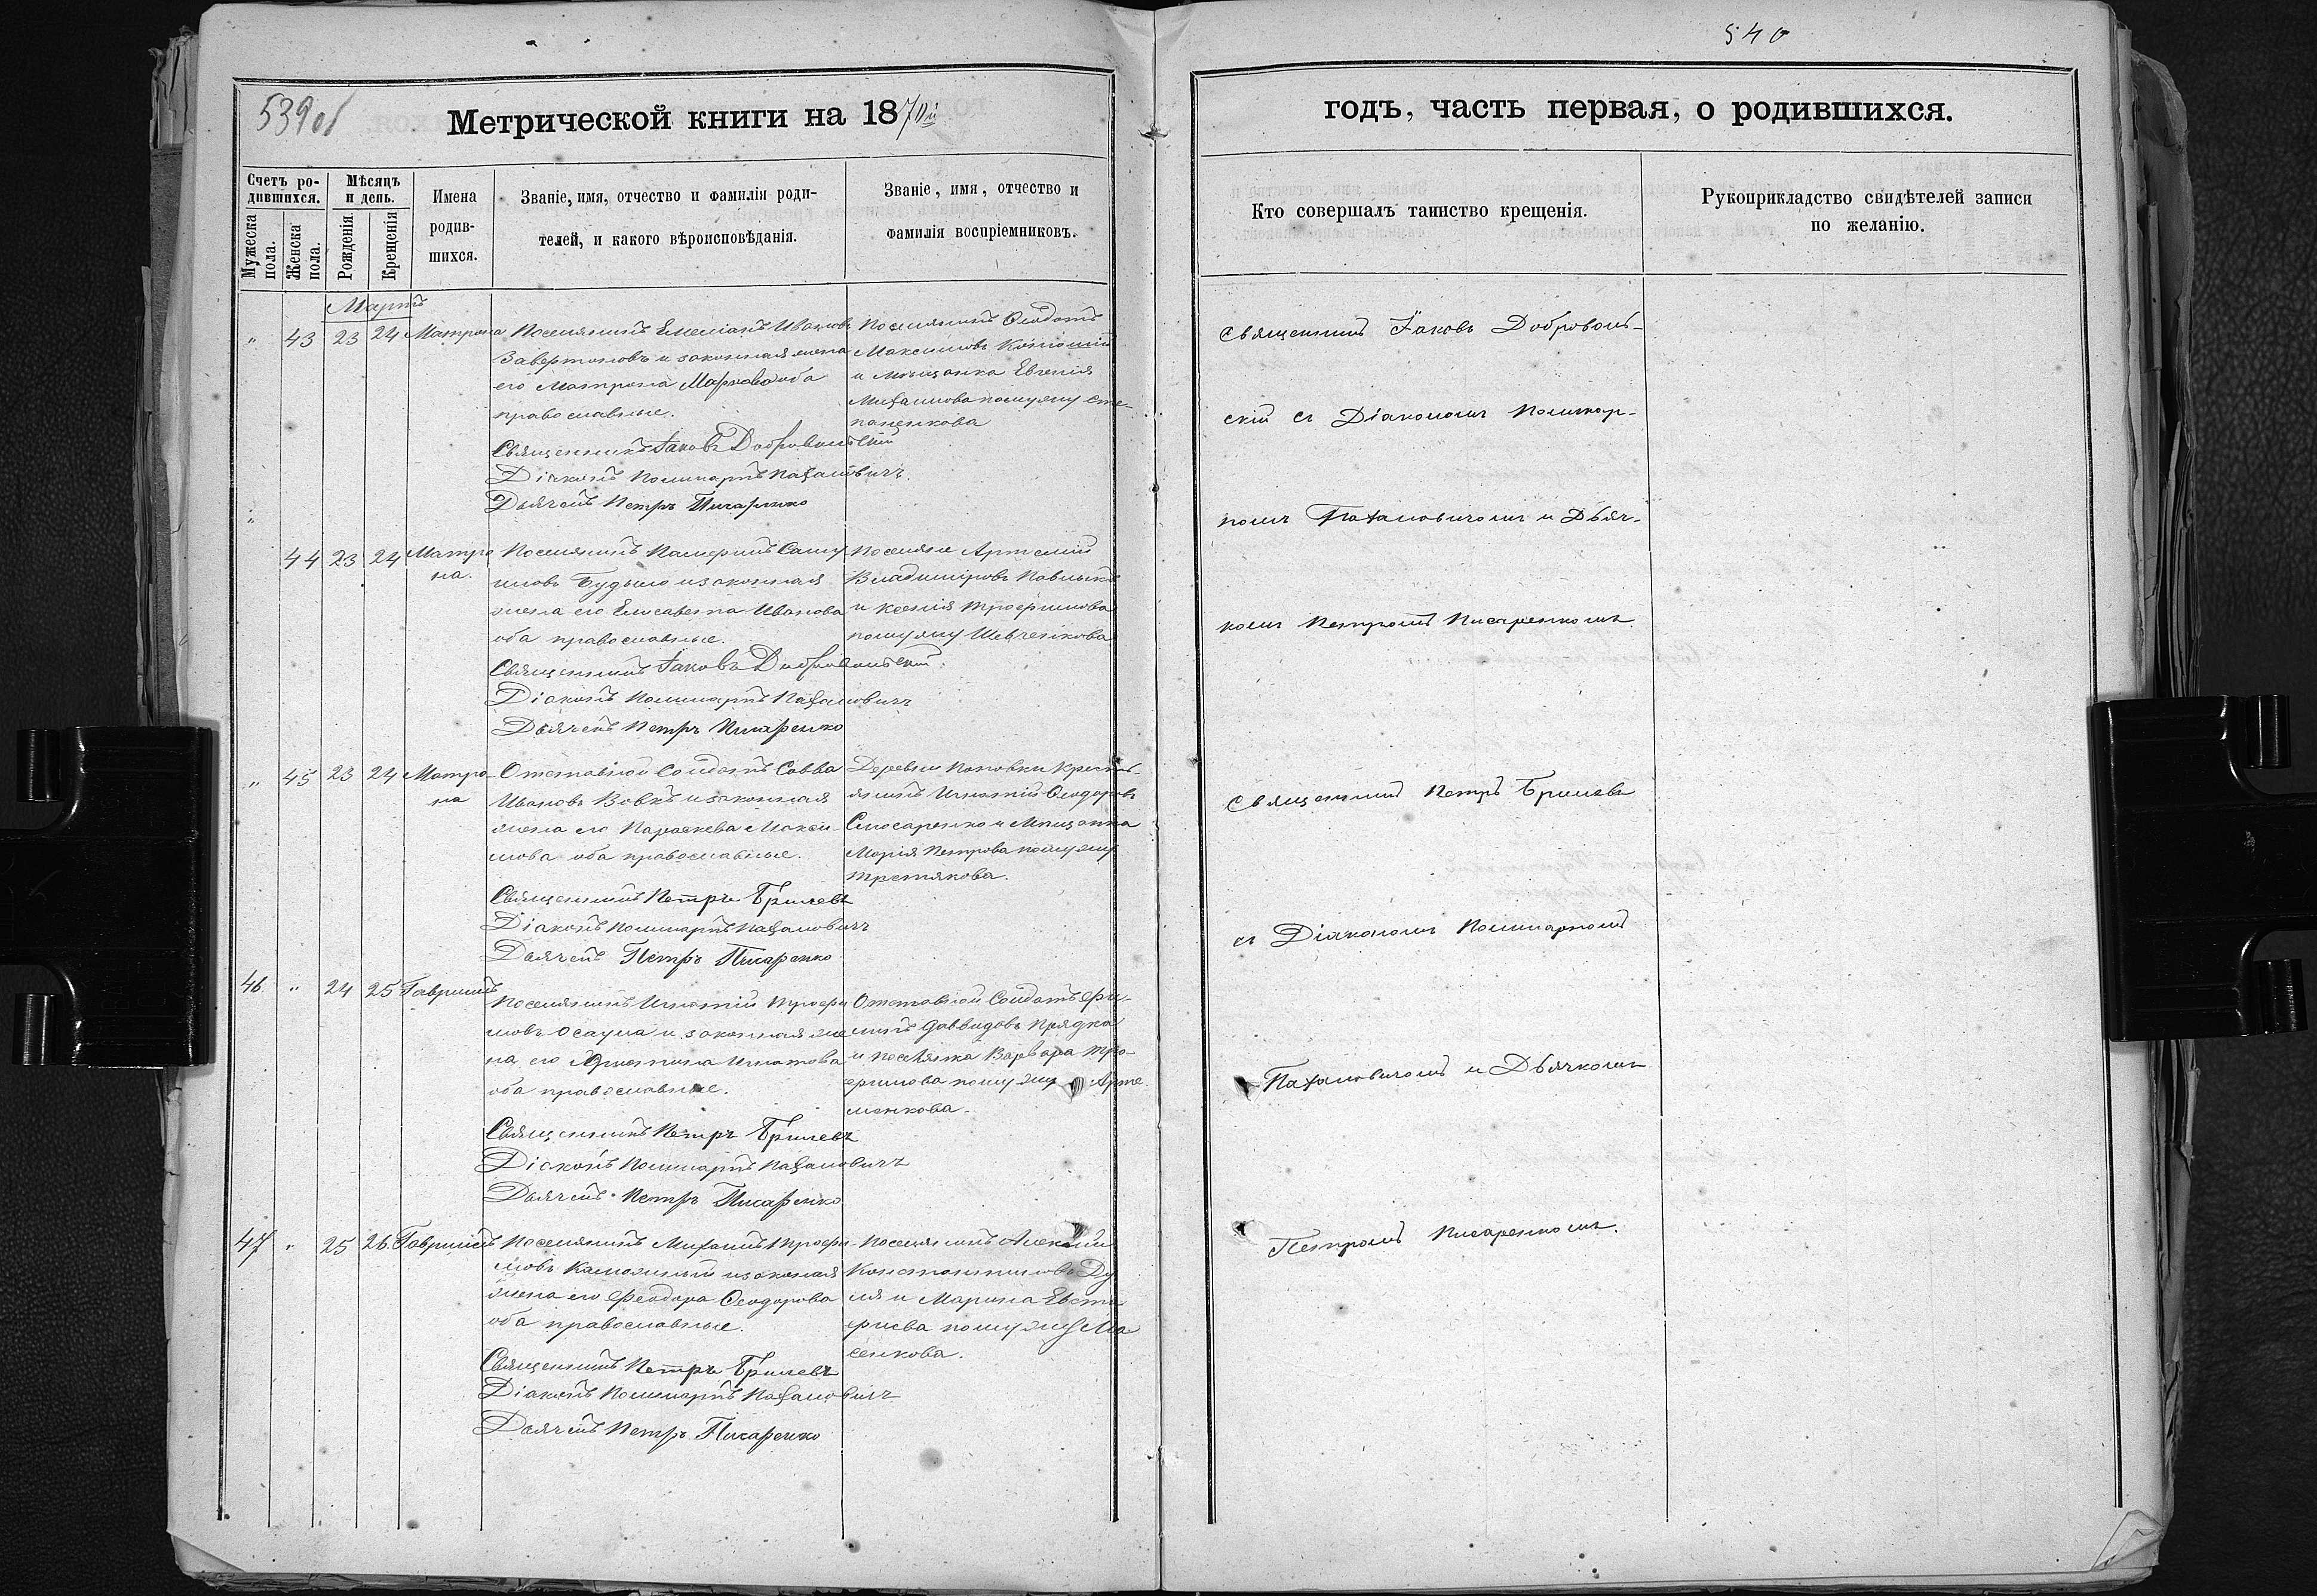 540
539 об
Метрической книги на 1870й
годъ, часть первая, о родившихся.
Счетъ ро-
дившихся.
Мѣсяцъ
и день.
Имена
родив-
шихся.
Званіе, имя, отчество и фамилія роди-
телей, и какого вѣроисповѣданія.
Званіе, имя, отчество и
фамилія воспріемниковъ.
Мужеска
пола.
Женска
пола.
Рожденія
Крещенія
Кто совершалъ таинство крещенія.
Рукоприкладство свидѣтелей записи
по желанію.
Мартъ
„ 43 23 24 Матрона
Поселянинъ Емеліанъ Ивановъ
и законная жена
его Матрона Маркова оба
православные.
Священникъ Іаковъ Добровольскій
Діаконъ Поликарпъ Пафаловичъ.
Дьячекъ Петръ Писаренко
Поселянинъ Ѳеодотъ
Максимовъ
и Мѣщанка Евгенія
Михаилова по мужу Сте-
паненкова
Священникъ Іаковъ Доброволь-
скій съ Діакономъ Поликар-
помъ Пафаловичомъ и Дьяч-
комъ Петромъ Писаренкомъ
„ 44 23 24 Матро
на.
Поселянинъ
иловъ Будыло и законная
жена его Елисавета Иванова
оба православные.
Священникъ Іаковъ Добровольскій.
Діаконъ Поликарпъ Пафаловичъ
Дьячекъ Петръ Писаренко
Поселяне Артемій
Владиміровъ Павлыкъ
и Ксенія Трофимова
по мужу Шевченкова
„ 45 23 24 Матро-
на
Отставной Солдатъ Савва
Ивановъ Вовкъ и законная
жена его Параскева Макси-
мова оба православные.
Священникъ Петръ Брилевъ
Діаконъ Поликарпъ Пафаловичъ
Дьячекъ Петръ Писаренко
Деревни Поповки Кресть-
янинъ Игнатій Ѳеодоровъ
Слюсаренко и Мѣщанка
Марія Петрова по мужу
Третякова.
Священникъ Петръ Брилевъ
съ Діакономъ Поликарпомъ
Пафаловичомъ и Дьячкомъ
Петромъ Писаренкомъ.
46. „ 24 25 Гавріилъ
Поселянинъ Игнатій Трофи
мовъ Осаула и законная же
на его Игнатова
оба православные.
Священникъ Петръ Брилевъ
Діаконъ Поликарпъ Пафаловичъ
Дьячекъ Петръ Писаренко
Отставной Солдатъ Фи-
липъ Даввидовъ Прядка
и поселянка Варвара Тро-
фимова по мужу Арте
менкова.
47 „ 25 26. Гавріилъ
Поселянинъ Михаилъ Трофи
мовъ и законная
жена его Феодора Ѳеодорова
оба православные.
Священникъ Петръ Брилевъ
Діаконъ Поликарпъ Пафаловичъ
Дьячекъ Петръ Писаренко
Поселянинъ Алексій
Константиновъ Ду
ля и Марина Евсти
фиева по мужу Мо
сенкова.